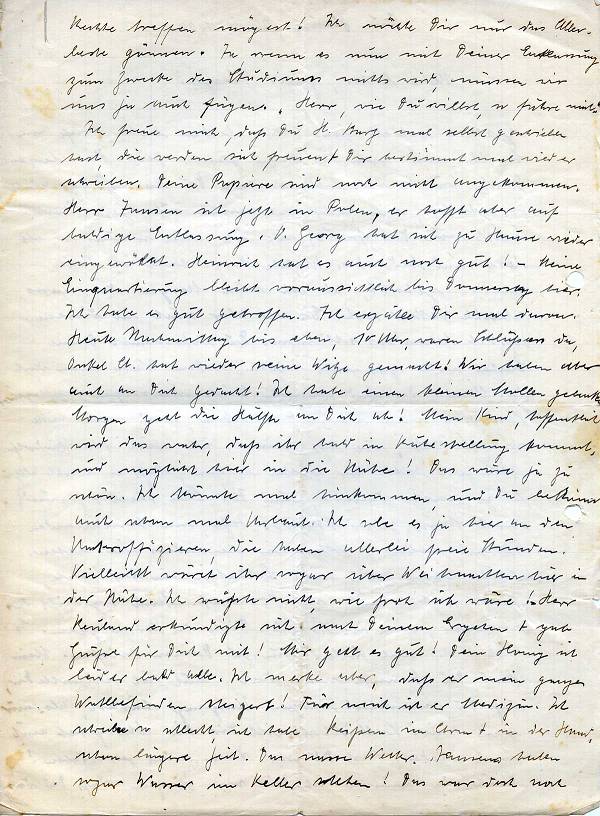 Rechte treffen mögest! Ich möchte Dir nur das Aller-
beste gönnen. Ja wenn es nun mit Deiner Entlassung
zum Zwecke des Studiums nichts wird, müssen wir
uns ja auch fügen. „Herr, wie Du willst, so führe mich."
Ich freue mich, daß Du H. Burg mal selbst geschrieben
hast die werden sich freuen + Dir bestimmt mal wieder
schreiben. Deine Papiere sind noch nicht angekommen.
Herr Jansen ist jetzt in Polen, er hofft aber auf
baldige Entlassung. V. Georg hat sich zu Hause wieder
eingewöhnt. Heinrich hat es auch noch gut! – Meine
Einquartierung bleibt voraussichtlich bis Donnerstag hier.
Ich habe es gut getroffen. Ich erzähle Dir mal davon.
Heute Nachmittag bis eben, 10 Uhr, waren da,
Onkel hat wieder seine Witze gemacht! Wir haben aber
auch an Dich gedacht! Ich habe einen kleinen Stollen gebacken
Morgen geht die Hälfte an Dich ab! Mein Kind, hoffentlich
wird das wahr, daß ihr bald in Ruhestellung kommt,
und möglichst hier in die Nähe! Das wäre ja zu
schön. Ich könnte mal hinkommen, und Du bekämst
auch schon mal Urlaub. Ich sehe es ja hier an den
Unteroffizieren, die haben allerlei freie Stunden.
Vielleicht wärst ihr sogar über Weihnachten hier in
der Nähe. Ich wüßte nicht, wie froh ich wäre! Herr
erkundigte sich nach Deinem Ergehen + gab
Grüße für Dich mit! Mir geht es gut! Dein Honig ist
leider bald alle. Ich merke aber, daß er mein ganzes
Wohlbefinden steigert! Für mich ist er Medizin. Ich
schreibe so schlecht ich habe Reißen im Arm + in der Hand,
schon längere Zeit. Das nasse Wetter. Jansens haben
sogar Wasser im Keller stehen! Das war doch noch